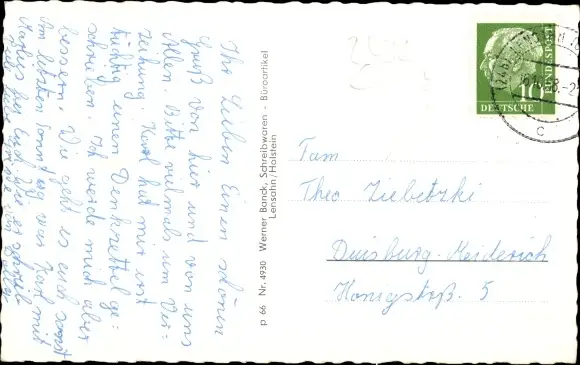 Ihr Lieben Einen schönen
Gruß von hier und von uns
Allen. Bitte vielmals um Ver-
zeihung. Karl hat mir erst
kräftig einen Denkzettel ge-
schrieben. Ich werde mich aber
bessern. Wie geht es euch sonst
Am letzten Sonntag war Karl mit
hier
p 66 Nr. 4930 Werner Banck, Schreibwaren - Büroartikel
Lensahn/Holstein
10
BUNDESPOST
DEUTSCHE
c
Fam
Theo Ziebetzki
Duisburg-Meiderich
Königstrß. 5